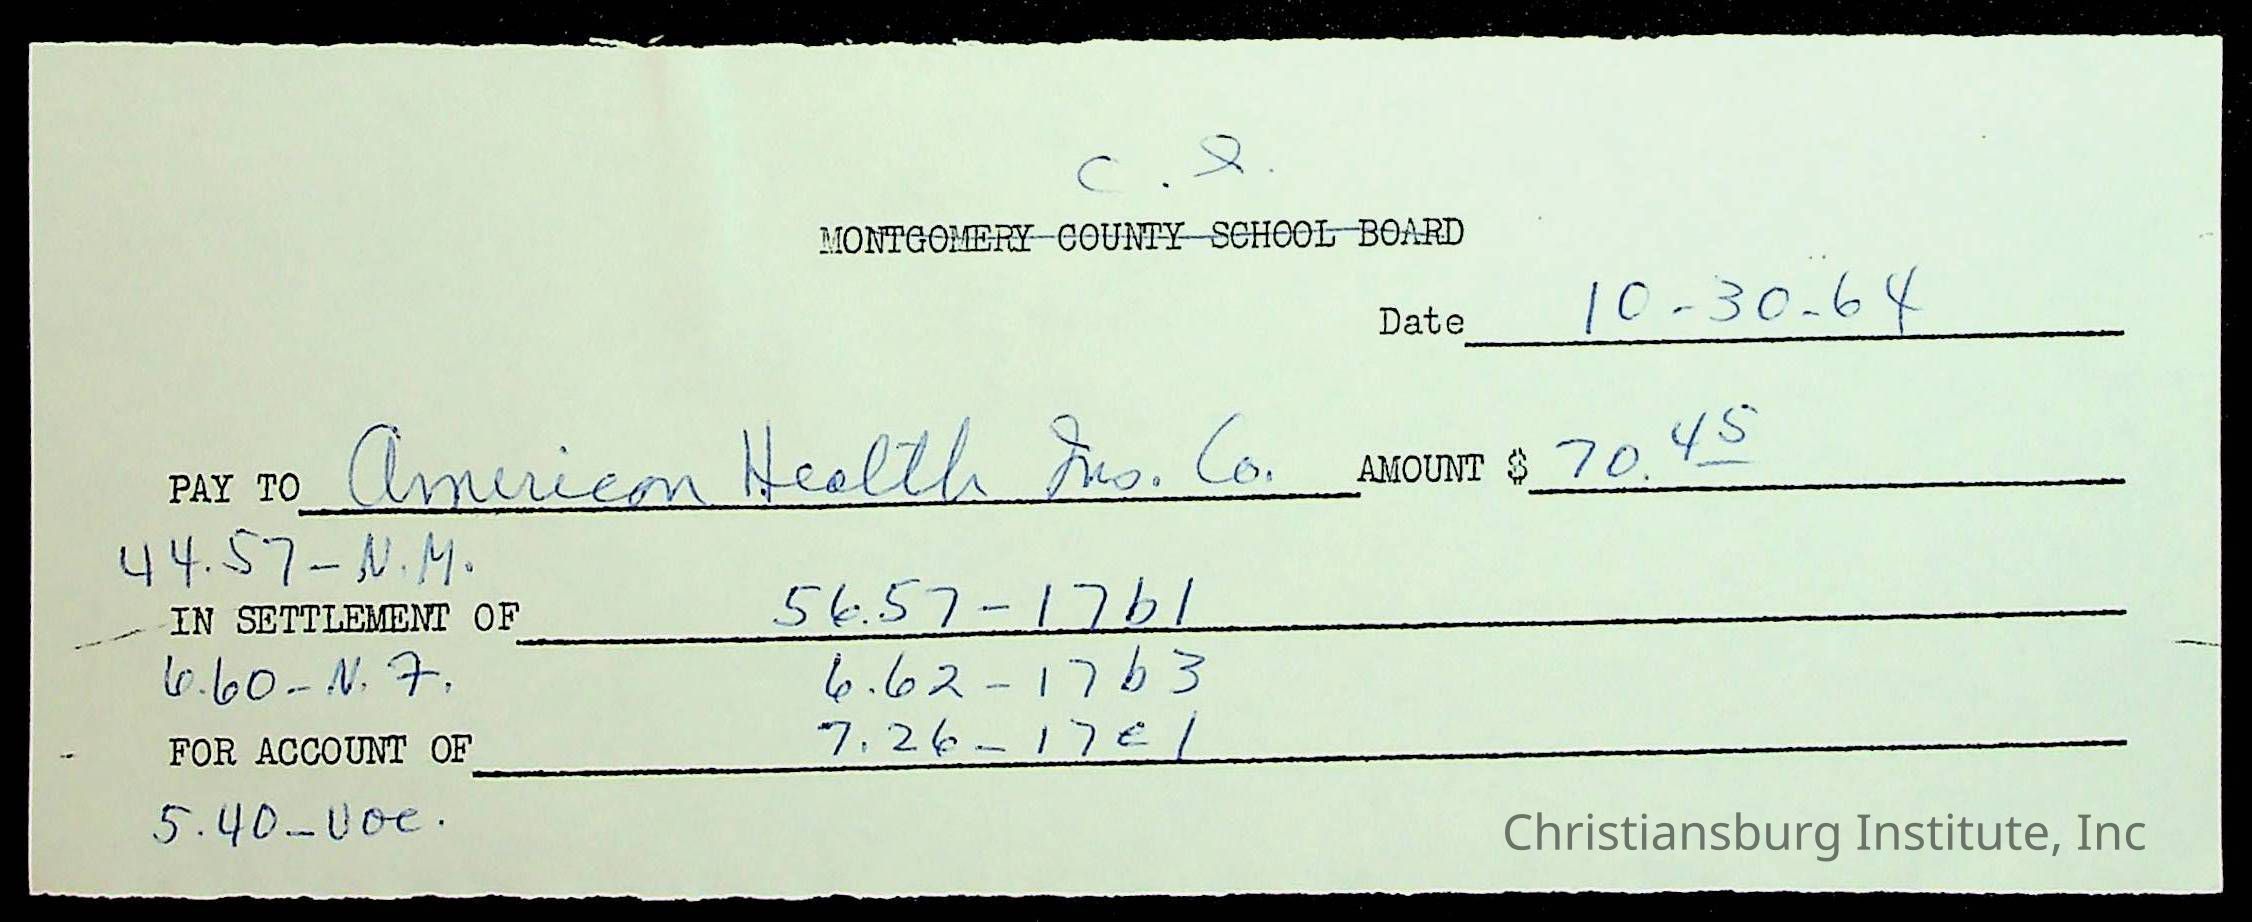 C. I.
MONTGOMERY COUNTY SCHOOL BOARD
Date 10-30-64
PAY TO American Health Ins. Co. AMOUNT $ 70.45
44.57-N.M.
IN SETTLEMENT OF 56.57-17b1
6.60-N.F. 6.62-17b3
FOR ACCOUNT OF 7.26-17e1
5.40-Voc.
Christiansburg Institute, Inc